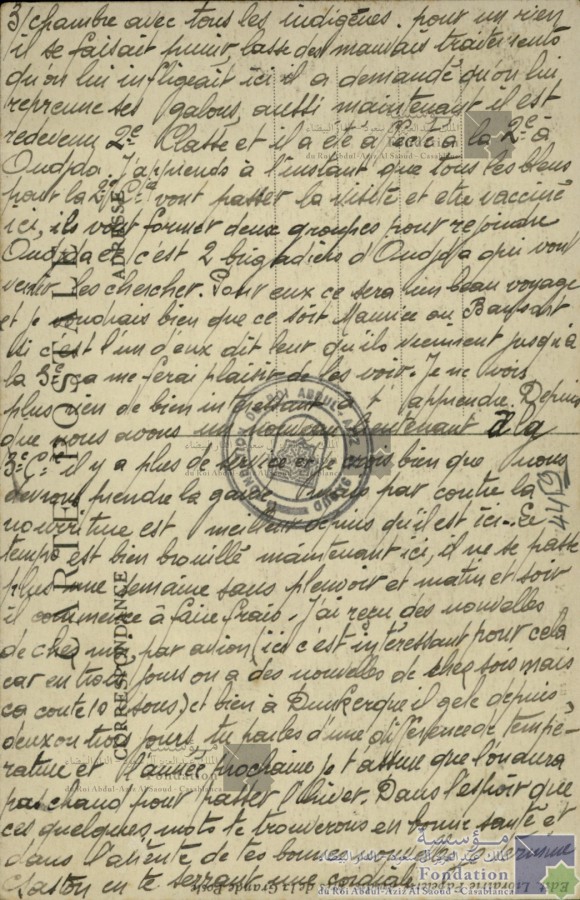 3/ chambre avec tous les indigènes. pour un rien
il se faisait punir, lassé des mauvais traitements
qu'on lui infligeait ici il a demandé qu'on lui
reprenne ses galons, aussi maintenant il est
redevenu 2e Classe et il a été à la 2e à
Oudjda. J'apprends à l'instant que tous les bleus
pour la 2e Cie vont passer la visite et etre vacciné
ici, ils vont former deux groupes pour rejoindre
Oudjda et c'est 2 brigadiers d'Oudjda qui vont
venir les chercher. Pour eux ce sera un beau voyage
et je voudrais bien que ce soit Maurice ou
si c'est l'un d'eux dit leur qu'ils viennent jusqu'à
la 3e Ca me ferai plaisir de les voir. Je ne vois
plus rien de bien intéressant à t'apprendre. Depuis
que nous avons un nouveau lieutenant à la
3e Cie il y a plus de service et je crois bien que nous
devrons prendre la garde, mais par contre la
nourriture est meilleure depuis qu'il est ici. Le
temps est bien brouillé maintenant ici, il ne se passe
plus une semaine sans pleuvoir et matin et soir
il commence à faire frais. J'ai reçu des nouvelles
de chez moi par avion (ici c'est intéressant pour cela
car en trois jours on a des nouvelles de chez sois mais
ca coute 10 sous) et bien à Dunkerque il gele depuis
deux ou trois jours, tu parles d'une différence de tempé-
rature et l'année prochaine je t'assure que l'on aura
pas chaud pour passer l'hiver. Dans l'espoir que
ces quelques mots te trouverons en bonne santé et
dans l'attente de tes bonnes nouvelles je termine
Gaston en te serrant une cordiale
CARTE POSTALE
CORRESPONDANCE
ADRESSE
FONDATION DU ROI ABDUL AZIZ AL SAOUD
مؤسسة
الملك عبد العزيز آل سعود - الدار البيضاء
Fondation
du Roi Abdul-Aziz Al Saoud - Casablanca